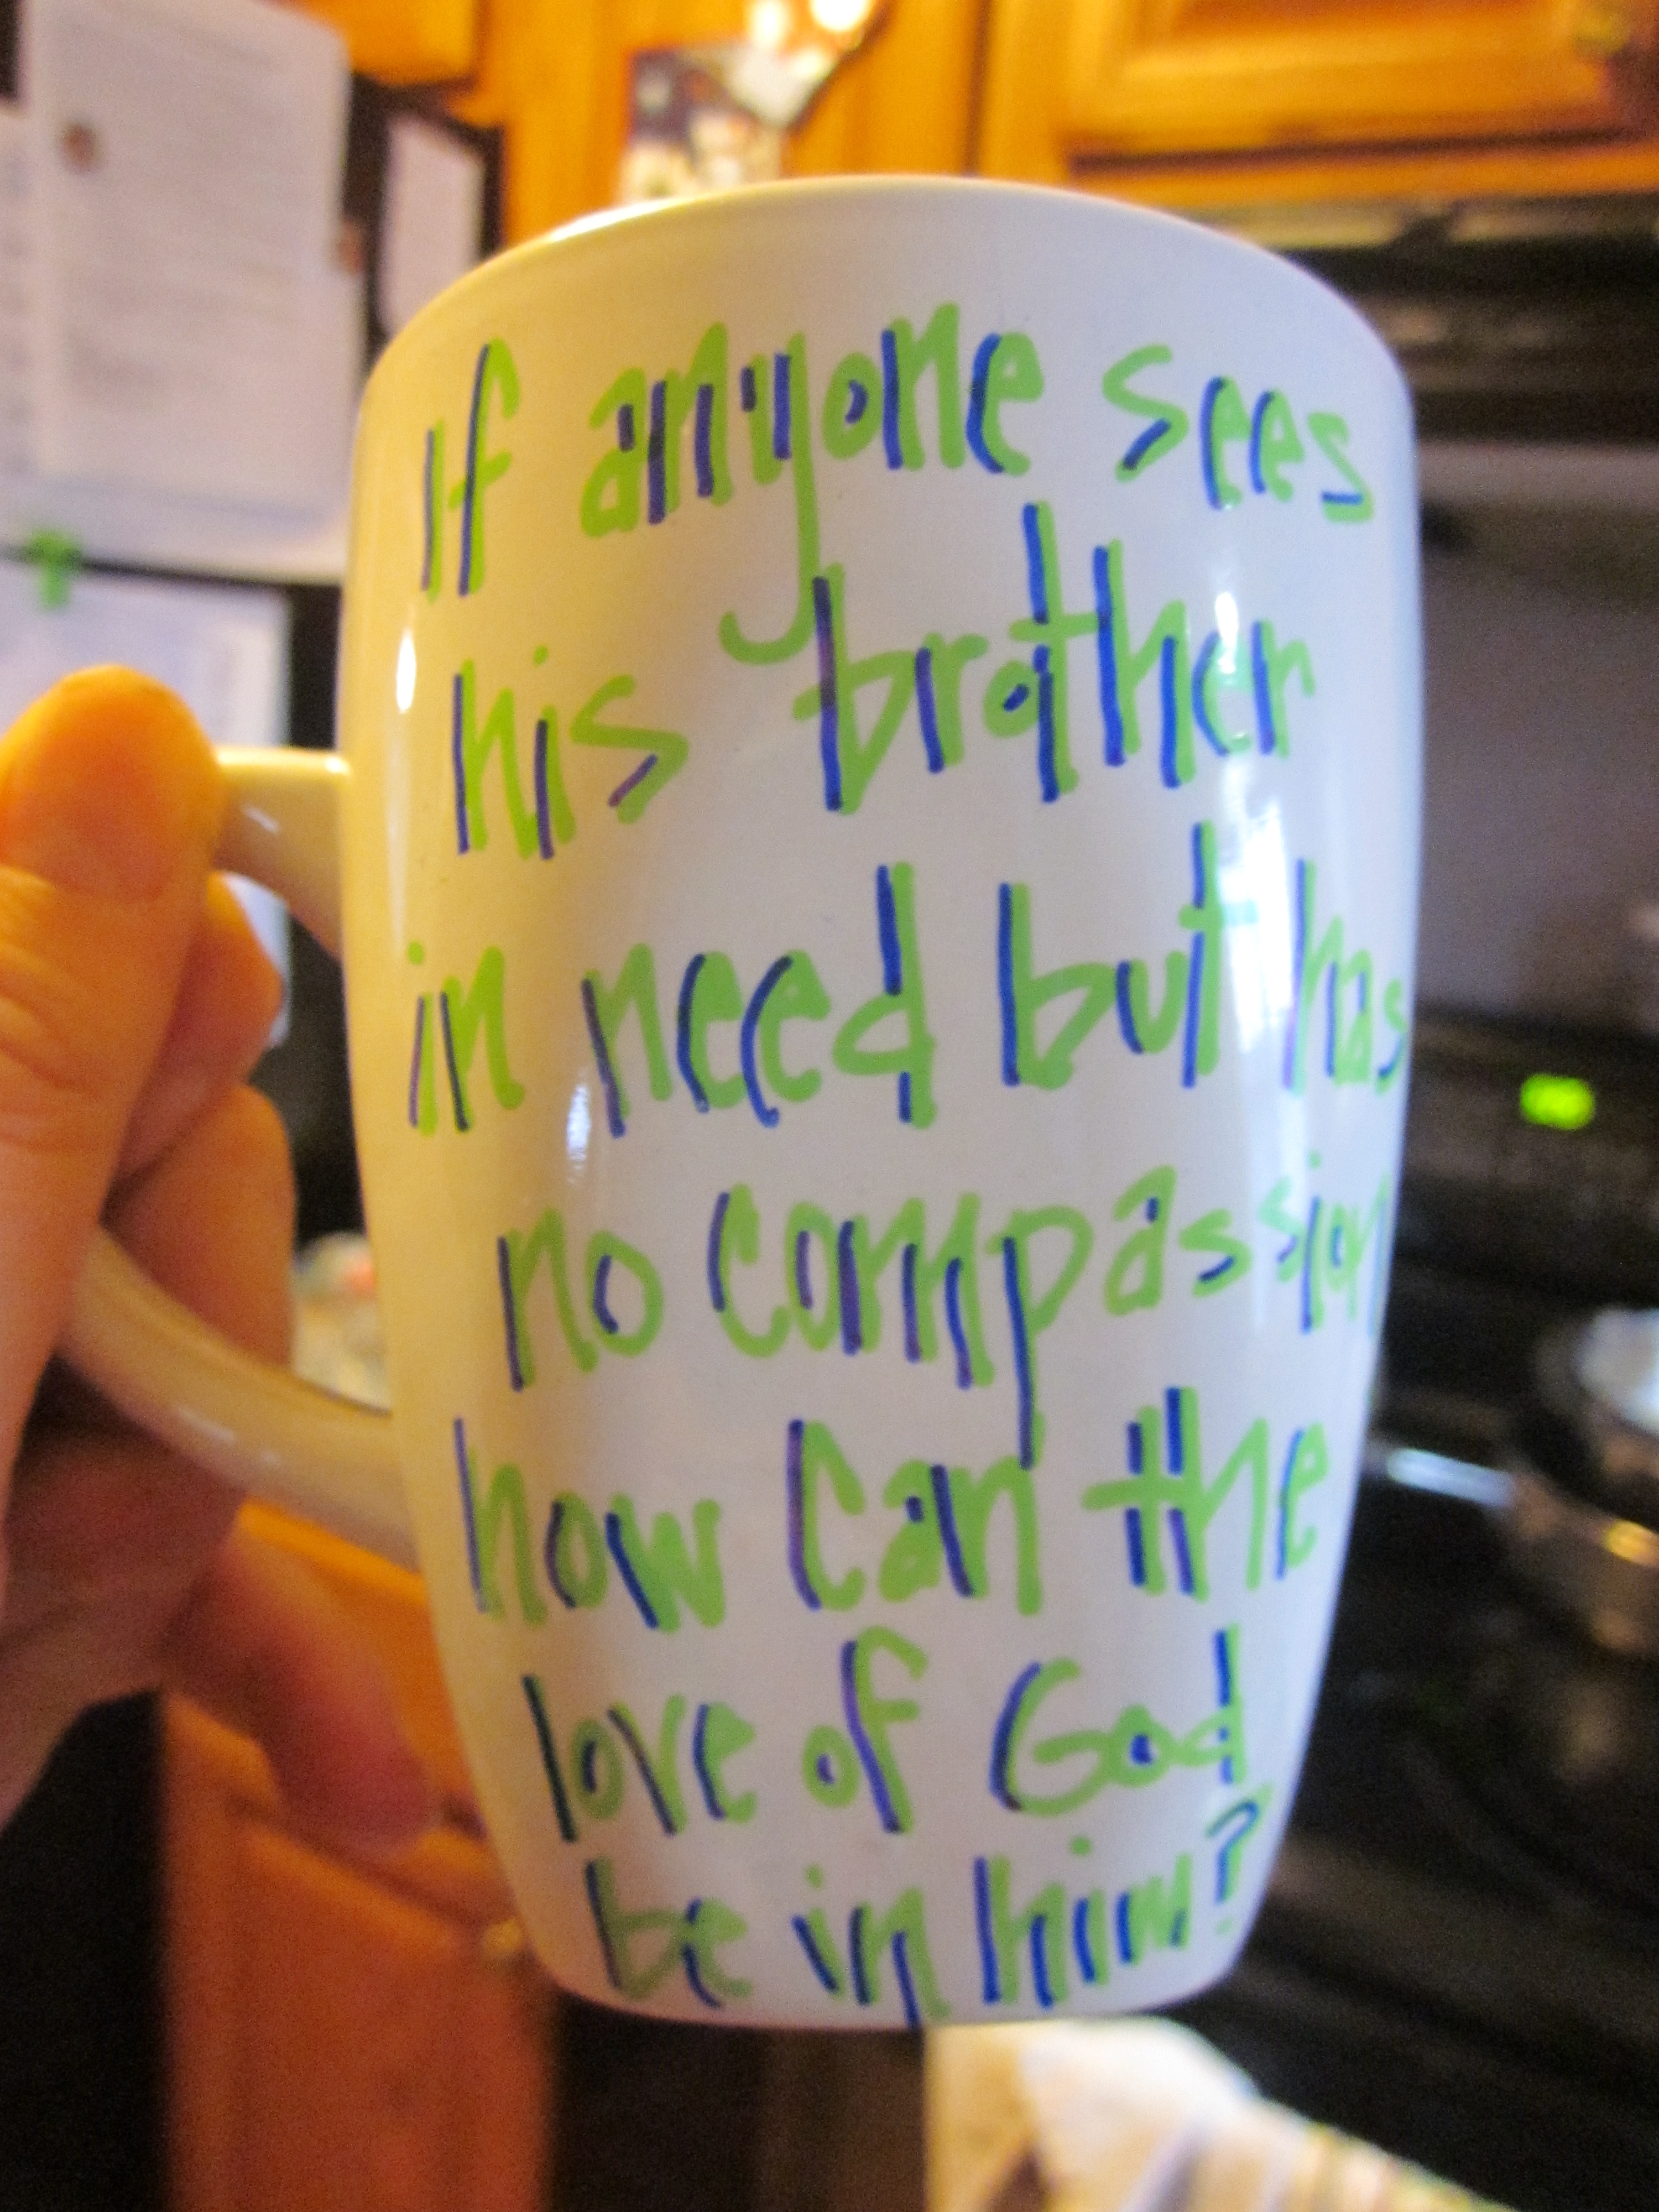 If anyone sees
his brother
in need but has
no compassion
how can the
love of God
be in him?